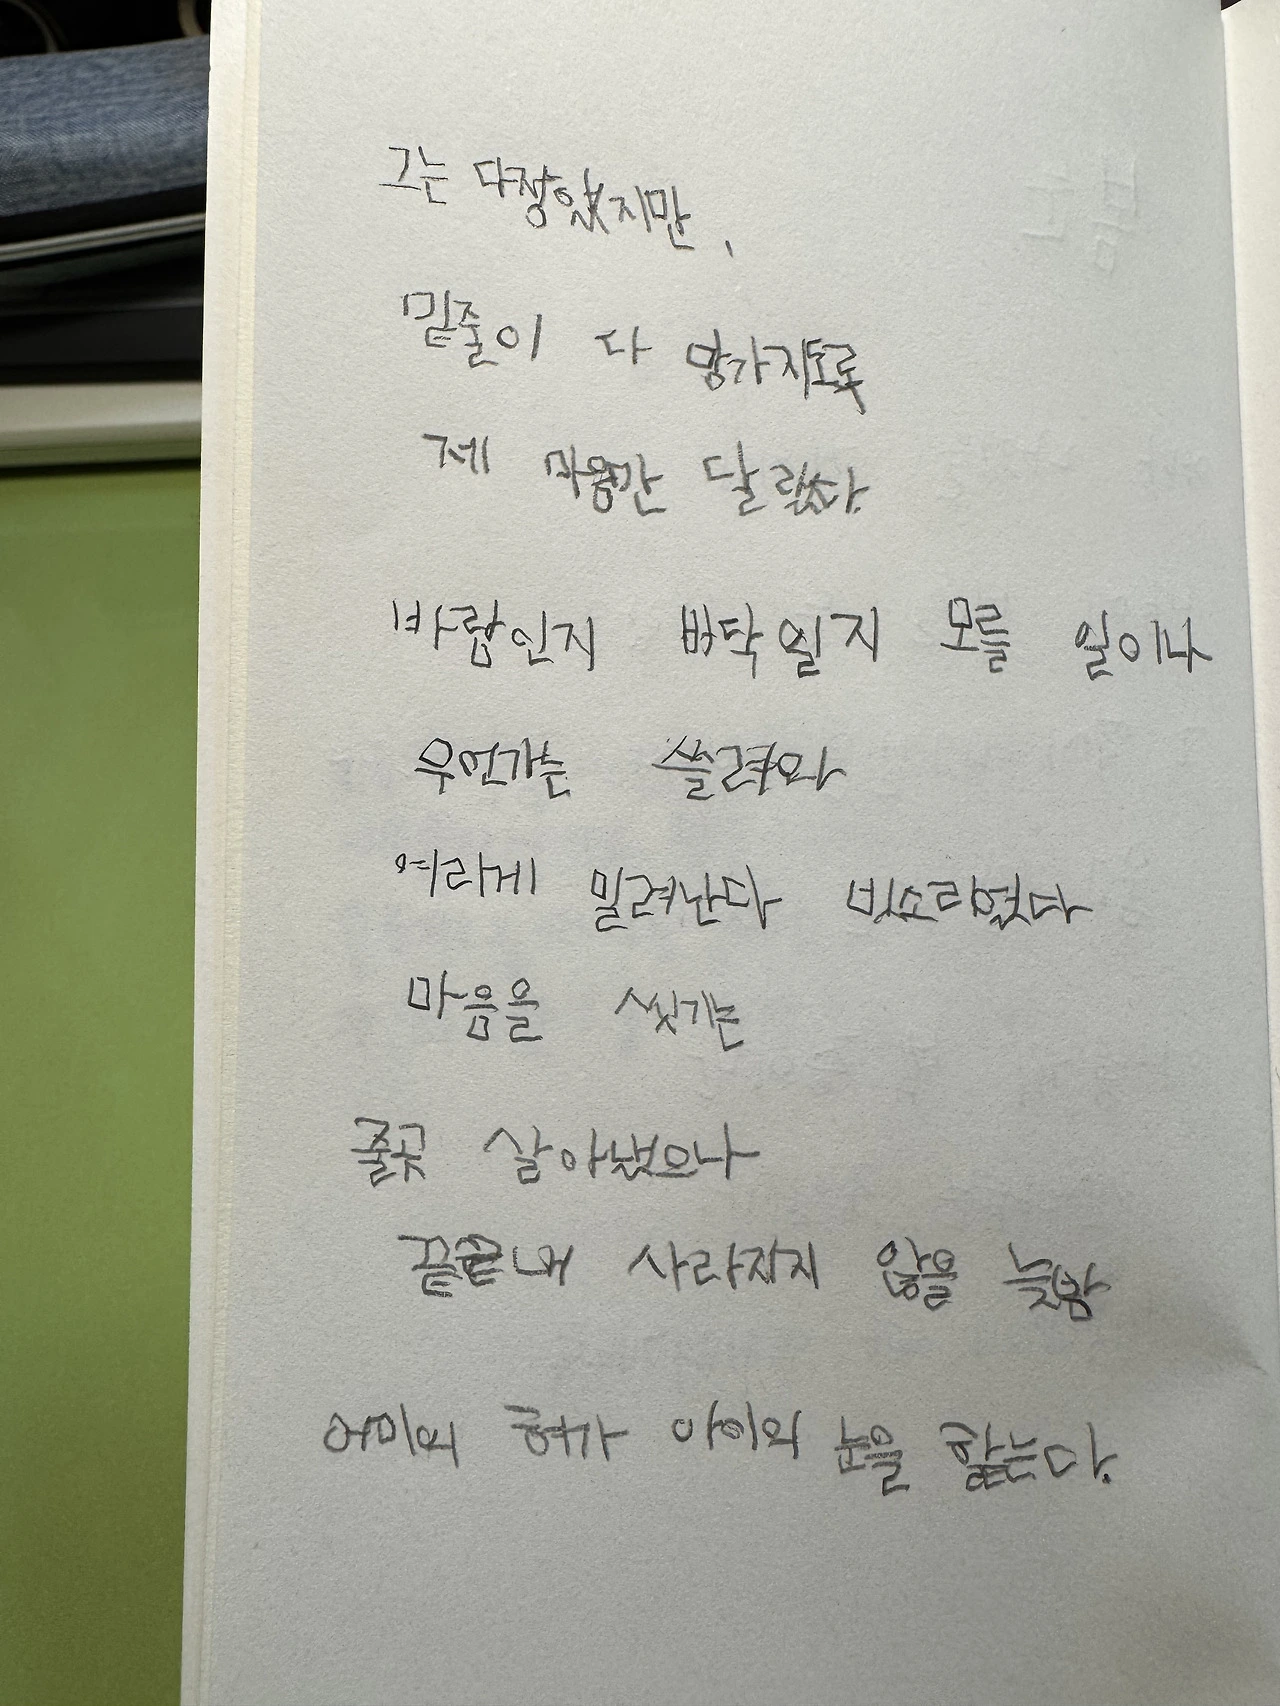 그는 다정했지만,
밑줄이 다 망가지도록
제 마음만 달랬다.
바람인지 바닥일지 모를 일이나
무언가는 쓸려와
여리게 밀려난다 빗소리였다
마음을 씻기는
줄곧 살아냈으나
끝끝내 사라지지 않을 늦밤
어미의 혀가 아이의 눈을 핥는다.